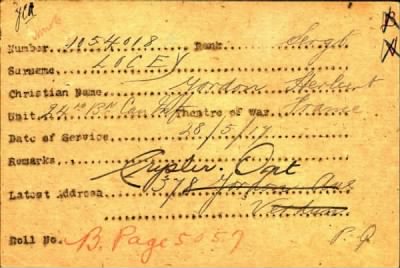 Number 1054018 Rank Sergt
Surname LOCEY
Christian Name Gordon Herbert
Unit 24th Bn Can Inf Theatre of War France
Date of Service 28/5/17
Remarks
Latest Address 378
Verdun
P.Q
Roll No. B. Page 5057